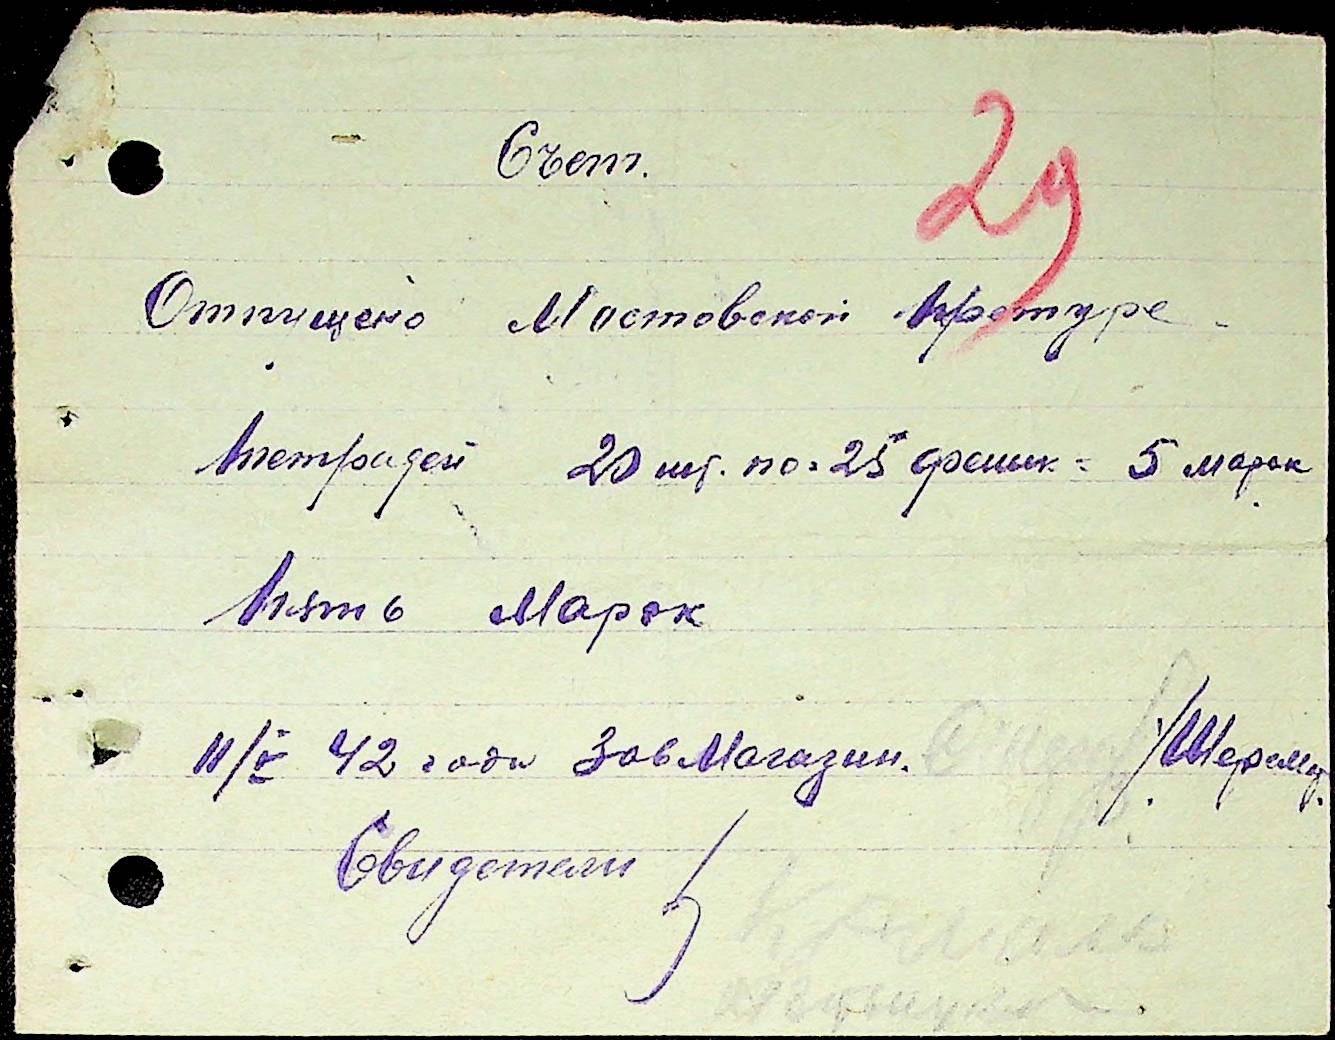 Счет.
29
Отпущено Мостовской Упр
Тетрадей 20 шт. по = 25 фениг = 5 марок
Пять Марок
11/V 42 года Зав Магазин. /Шереме
Свидетели